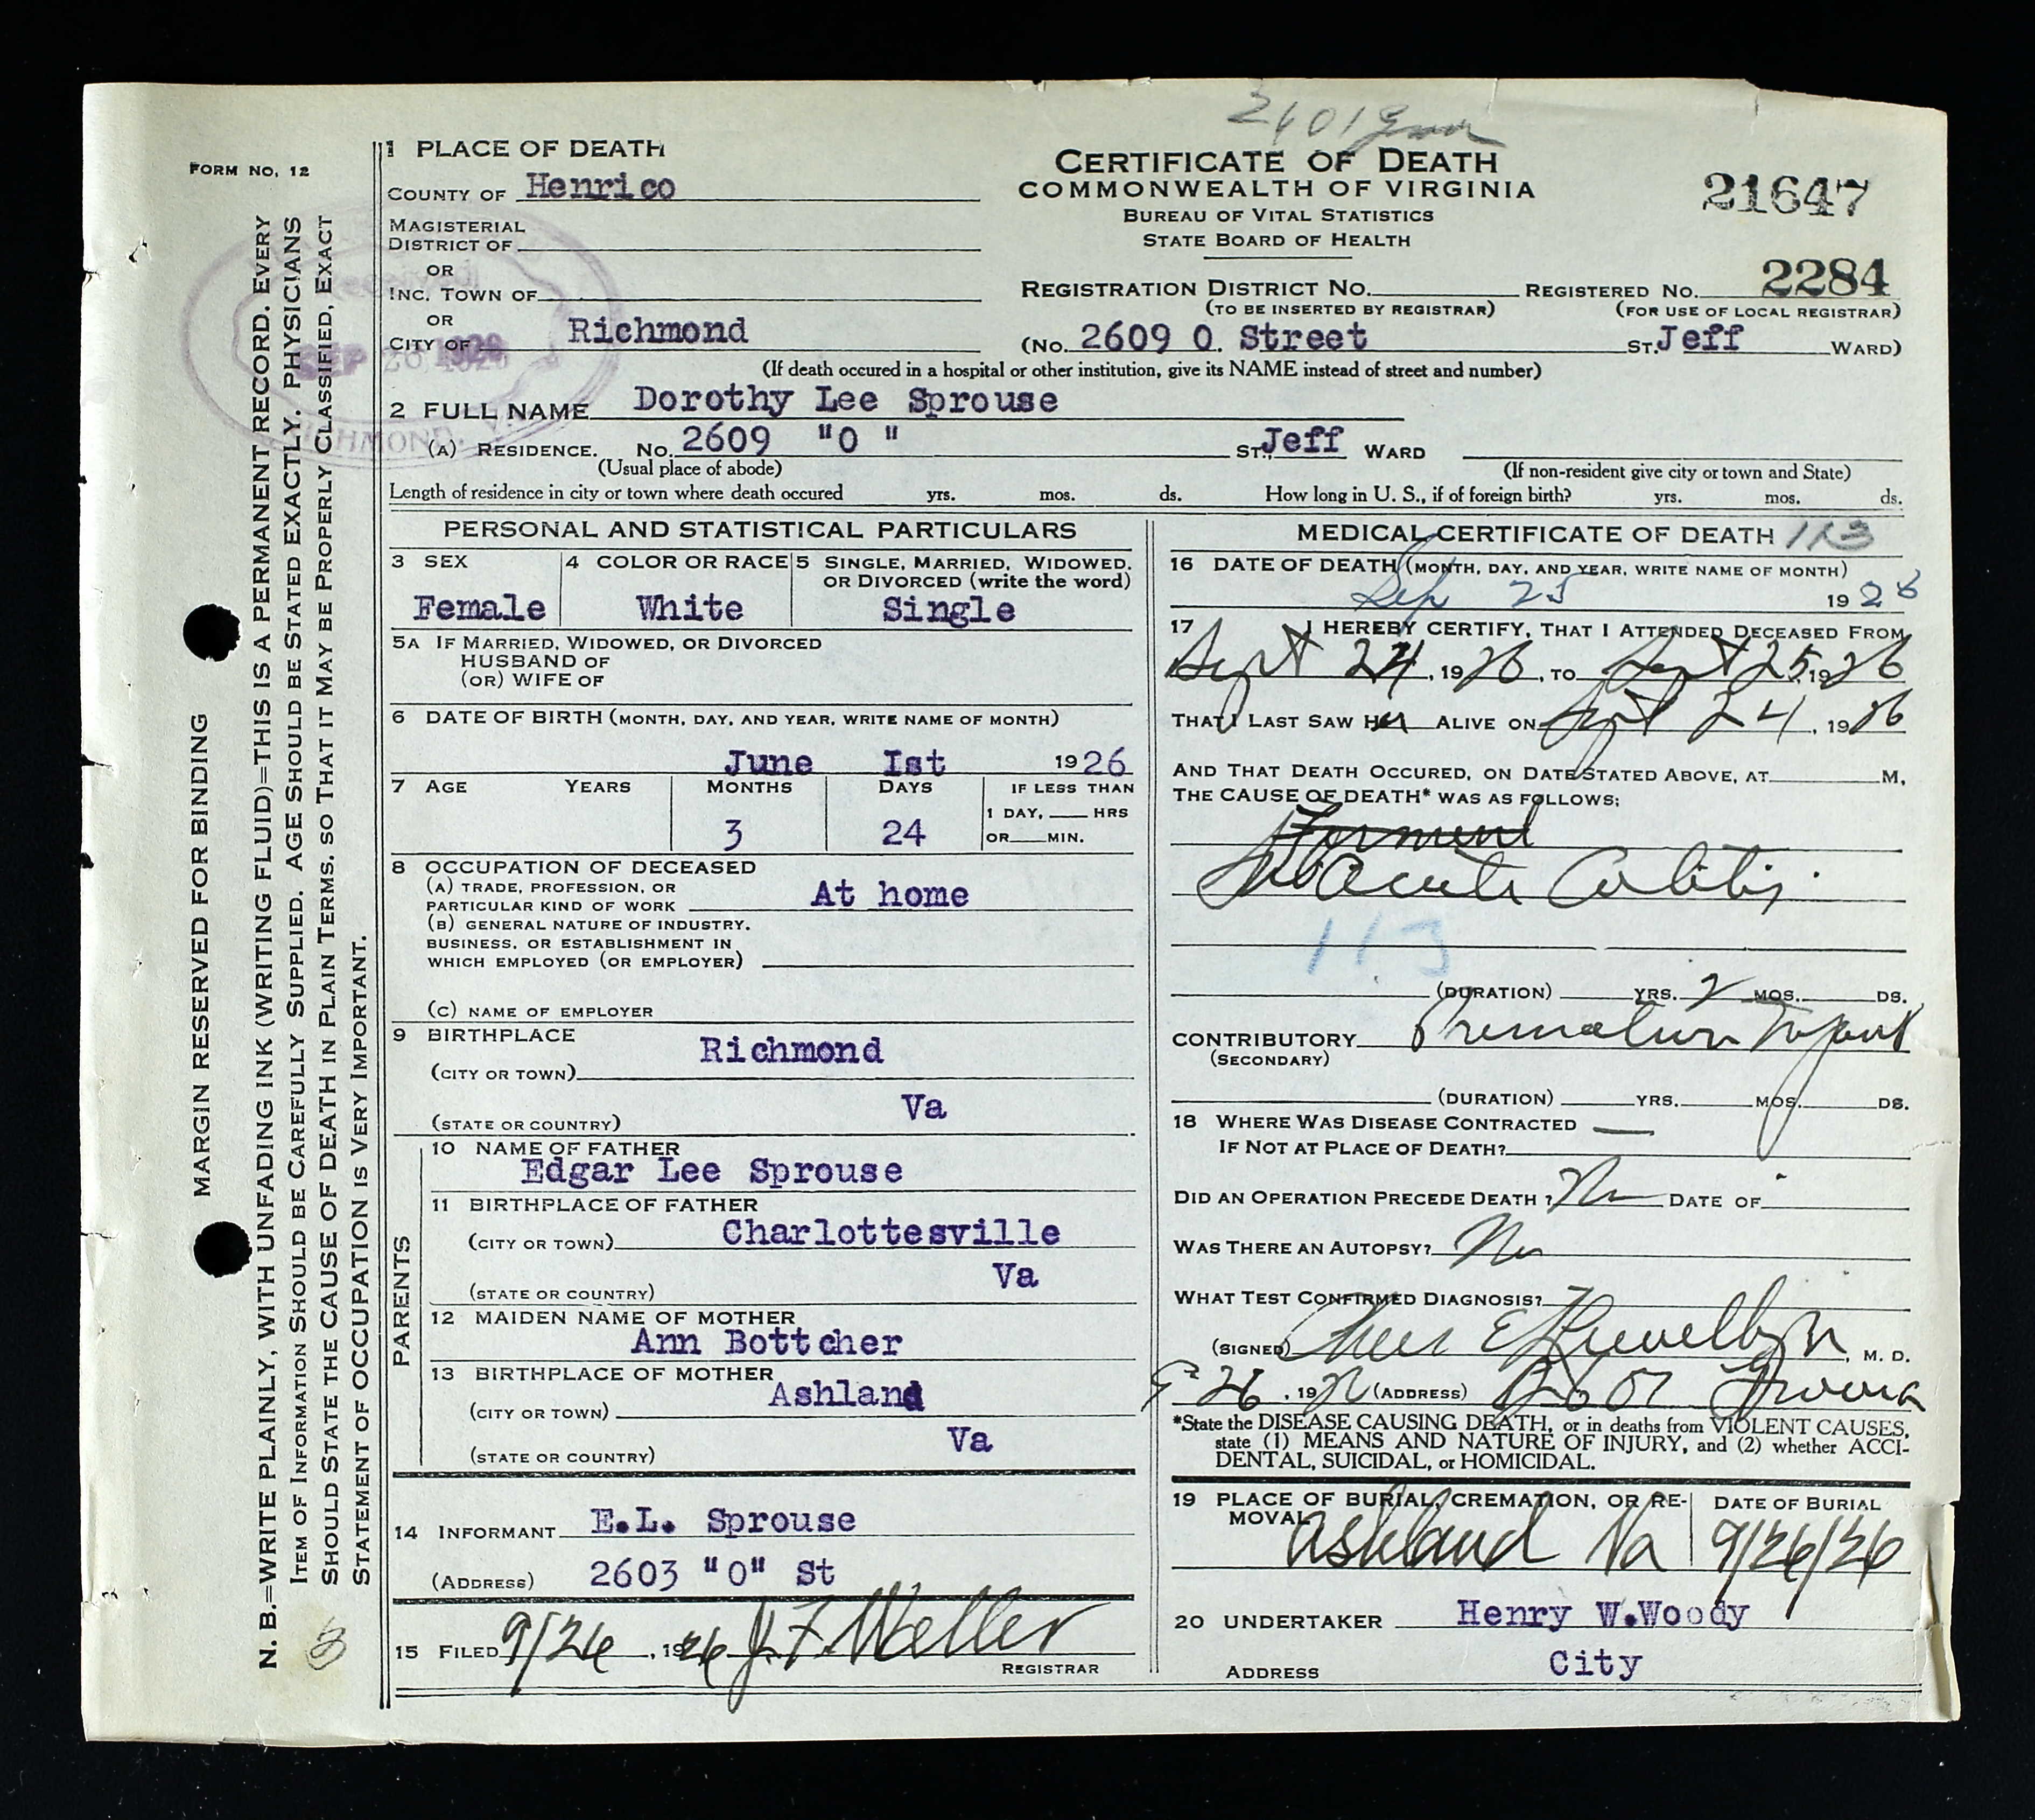 FORM NO. 12
MARGIN RESERVED FOR BINDING
N. B.=WRITE PLAINLY, WITH UNFADING INK (WRITING FLUID)=THIS IS A PERMANENT RECORD. EVERY
ITEM OF INFORMATION SHOULD BE CAREFULLY SUPPLIED. AGE SHOULD BE STATED EXACTLY. PHYSICIANS
SHOULD STATE THE CAUSE OF DEATH IN PLAIN TERMS, SO THAT IT MAY BE PROPERLY CLASSIFIED. EXACT
STATEMENT OF OCCUPATION IS VERY IMPORTANT.
1 PLACE OF DEATH
COUNTY OF Henrico
MAGISTERIAL
DISTRICT OF
OR
INC. TOWN OF
OR
CITY OF Richmond
CERTIFICATE OF DEATH
COMMONWEALTH OF VIRGINIA
BUREAU OF VITAL STATISTICS
STATE BOARD OF HEALTH
21647
REGISTRATION DISTRICT NO. REGISTERED NO. 2284
(TO BE INSERTED BY REGISTRAR) (FOR USE OF LOCAL REGISTRAR)
(No. 2609 O. Street ST. Jeff WARD)
(If death occured in a hospital or other institution, give its NAME instead of street and number)
2 FULL NAME Dorothy Lee Sprouse
(A) RESIDENCE. No. 2609 "O " ST., Jeff WARD
(Usual place of abode) (If non-resident give city or town and State)
Length of residence in city or town where death occured yrs. mos. ds. How long in U. S., if of foreign birth? yrs. mos. ds.
PERSONAL AND STATISTICAL PARTICULARS
3 SEX 4 COLOR OR RACE 5 SINGLE, MARRIED, WIDOWED,
OR DIVORCED (write the word)
Female White Single
5A IF MARRIED, WIDOWED, OR DIVORCED
HUSBAND OF
(OR) WIFE OF
6 DATE OF BIRTH (MONTH, DAY, AND YEAR, WRITE NAME OF MONTH)
June Ist 1926
7 AGE YEARS MONTHS DAYS IF LESS THAN
1 DAY, HRS
3 24 OR MIN.
8 OCCUPATION OF DECEASED
(A) TRADE, PROFESSION, OR
PARTICULAR KIND OF WORK At home
(B) GENERAL NATURE OF INDUSTRY,
BUSINESS, OR ESTABLISHMENT IN
WHICH EMPLOYED (OR EMPLOYER)
(C) NAME OF EMPLOYER
9 BIRTHPLACE
(CITY OR TOWN) Richmond
(STATE OR COUNTRY) Va
PARENTS
10 NAME OF FATHER
Edgar Lee Sprouse
11 BIRTHPLACE OF FATHER
(CITY OR TOWN) Charlottesville
(STATE OR COUNTRY) Va
12 MAIDEN NAME OF MOTHER
Ann Bottcher
13 BIRTHPLACE OF MOTHER
(CITY OR TOWN) Ashland
(STATE OR COUNTRY) Va
14 INFORMANT E.L. Sprouse
(ADDRESS) 2603 "O" St
15 FILED 9/26, 1926 J. F. Weller
REGISTRAR
MEDICAL CERTIFICATE OF DEATH 113
16 DATE OF DEATH (MONTH, DAY, AND YEAR, WRITE NAME OF MONTH)
Sep 25 1926
17 I HEREBY CERTIFY, THAT I ATTENDED DECEASED FROM
Sept 24, 1926, TO Sept 25, 1926
THAT I LAST SAW Her ALIVE ON Sept 24, 1926
AND THAT DEATH OCCURED, ON DATE STATED ABOVE, AT M.
THE CAUSE OF DEATH* WAS AS FOLLOWS:
Acute Colitis.
113
(DURATION) YRS. 2 MOS. DS.
CONTRIBUTORY Premature Infant
(SECONDARY)
(DURATION) YRS. MOS. DS.
18 WHERE WAS DISEASE CONTRACTED —
IF NOT AT PLACE OF DEATH?
DID AN OPERATION PRECEDE DEATH? No DATE OF
WAS THERE AN AUTOPSY? No
WHAT TEST CONFIRMED DIAGNOSIS?
(SIGNED) Llewellyn, M. D.
26, 19 (ADDRESS)
*State the DISEASE CAUSING DEATH, or in deaths from VIOLENT CAUSES,
state (1) MEANS AND NATURE OF INJURY, and (2) whether ACCI-
DENTAL, SUICIDAL, or HOMICIDAL.
19 PLACE OF BURIAL, CREMATION, OR RE-
MOVAL DATE OF BURIAL
Ashland Va 9/26/26
20 UNDERTAKER Henry W.Woody
ADDRESS City